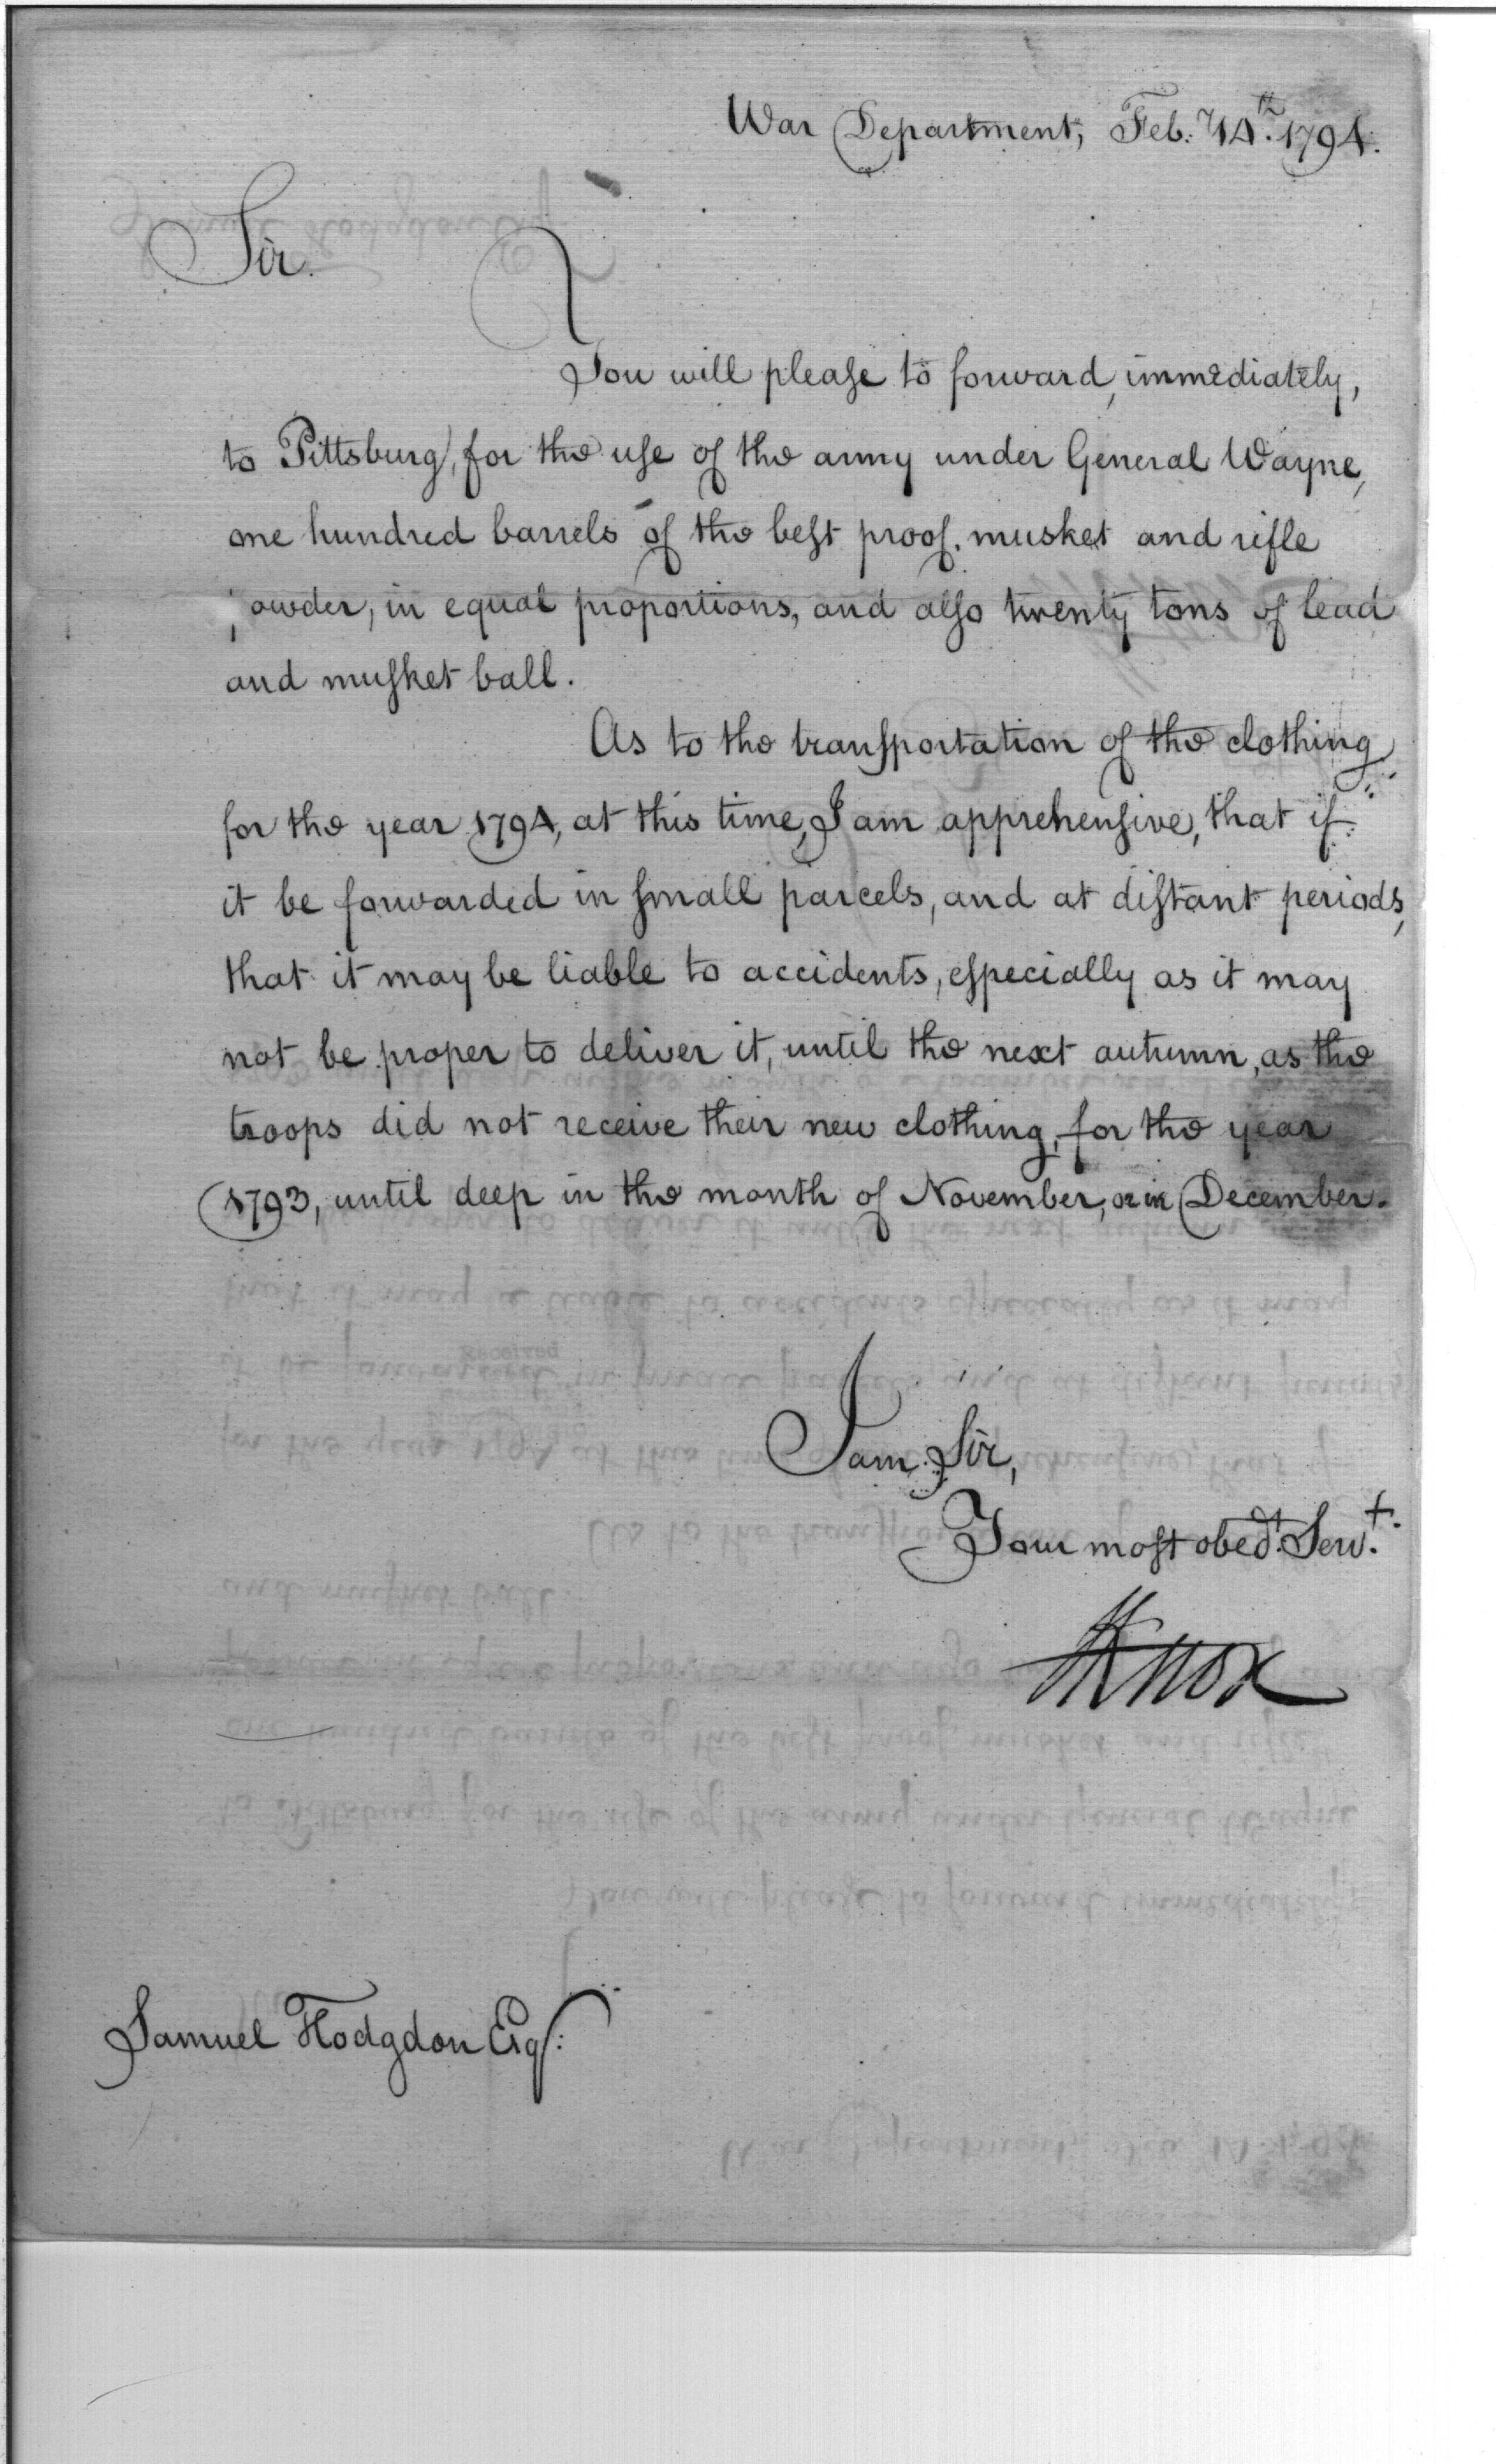 War Department, Feb:y 14th. 1794.
Sir.
You will please to forward, immediately,
to Pittsburg, for the use of the army under General Wayne,
one hundred barrels of the best proof, musket and rifle
powder, in equal proportions, and also twenty tons of lead
and musket ball.
As to the transportation of the clothing
for the year 1794, at this time, I am apprehensive, that if
it be forwarded in small parcels, and at distant periods,
that it may be liable to accidents, especially as it may
not be proper to deliver it, until the next autumn, as the
troops did not receive their new clothing, for the year
1793, until deep in the month of November, or in December.
I am Sir,
Your most obedt. Servt.
HKnox
Samuel Hodgdon Esqr: